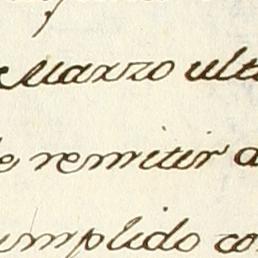 Marzo ulti
de remitir a
umplido con